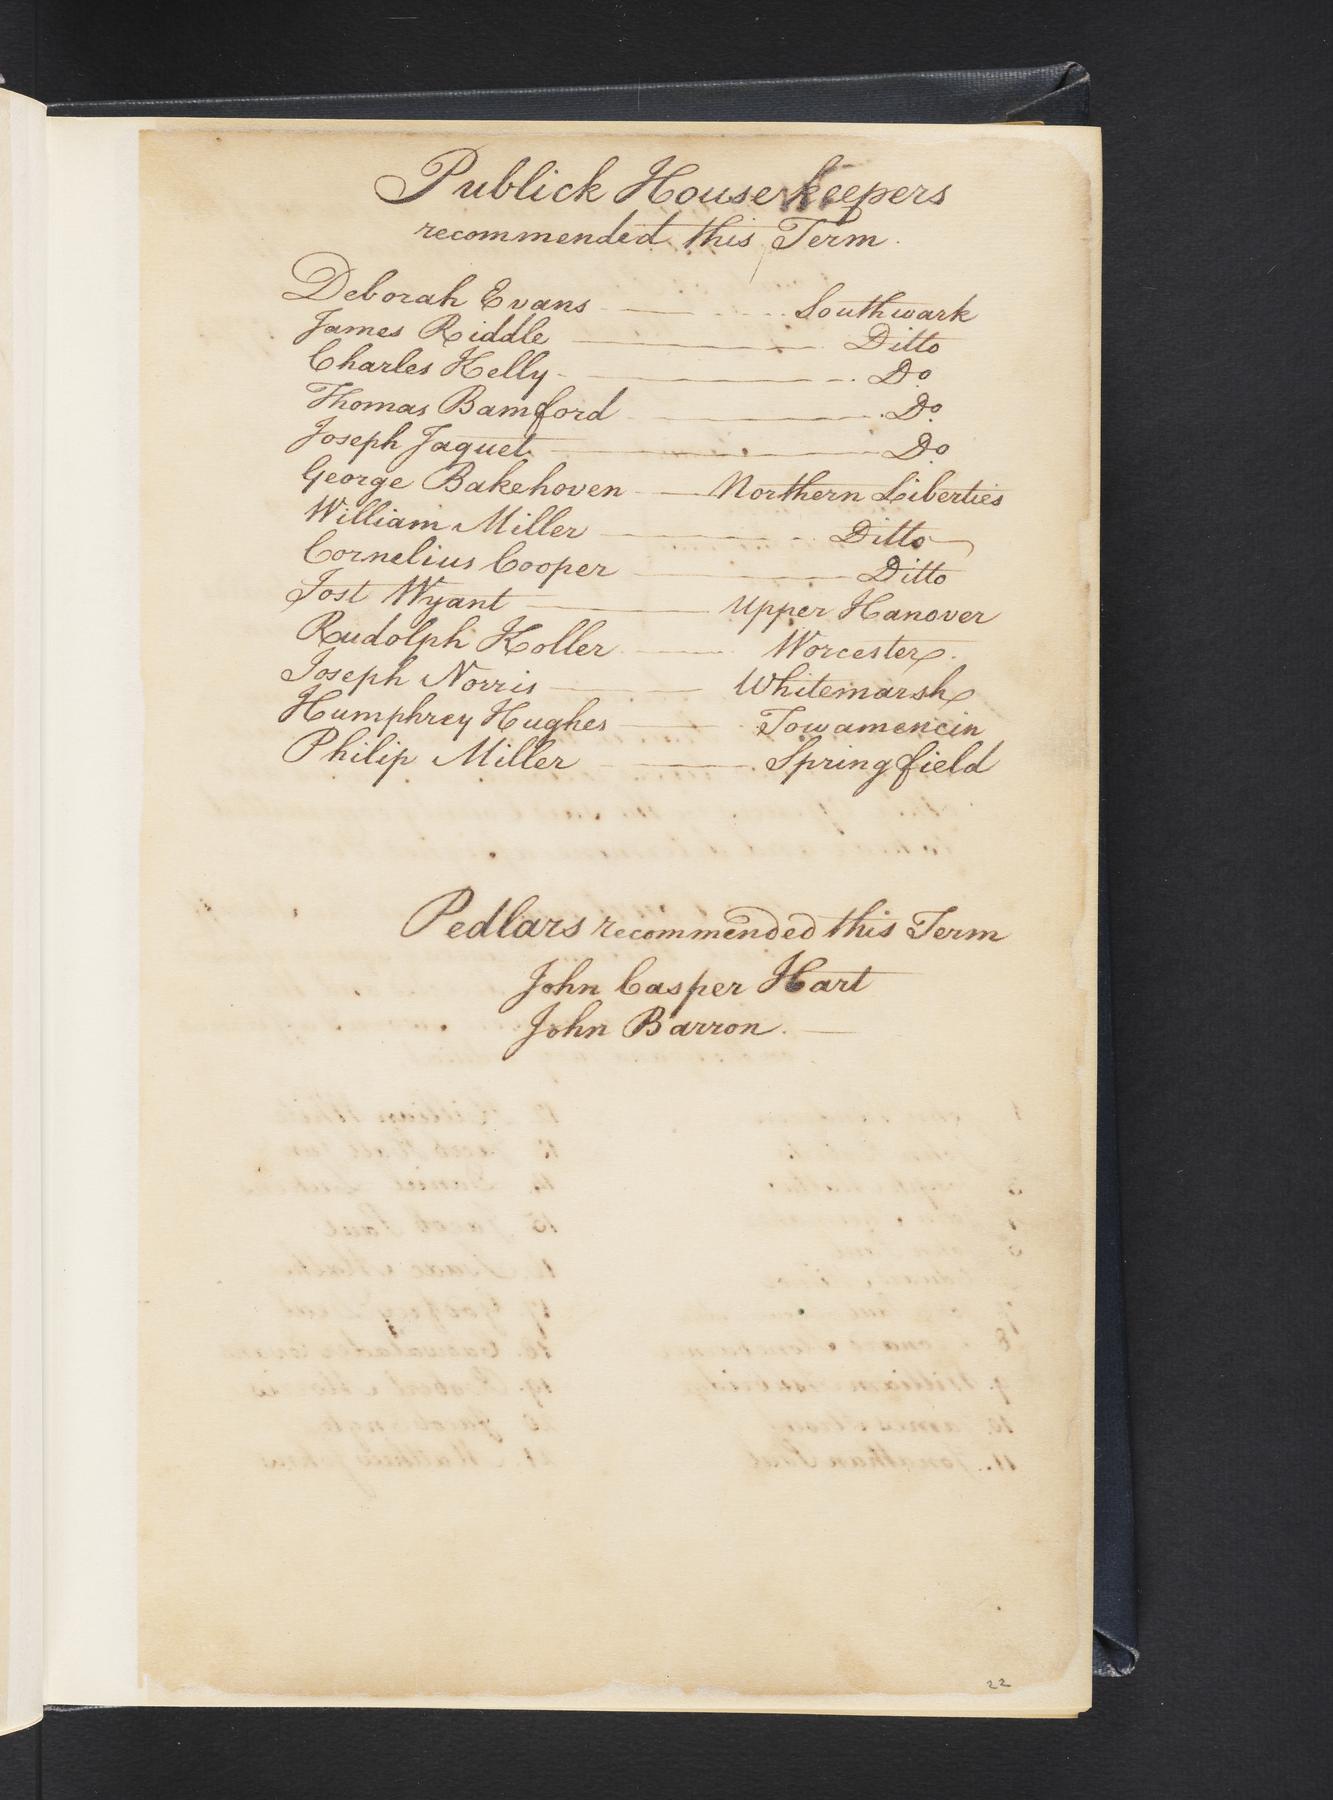 Publick Housekeepers
recommended this Term.
Deborah Evans Southwark
James Riddle Ditto
Charles Kelly Do
Thomas Bamford Do.
Joseph Jaquet Do
George Bakehoven Northern Liberties
William Miller Ditto
Cornelius Cooper Ditto
Jost Wyant Upper Hanover
Rudolph Holler Worcester.
Joseph Norris Whitemarsh
Humphrey Hughes Towamencin
Philip Miller Springfield
Pedlars recommended this Term
John Casper Hart
John Barron.
22